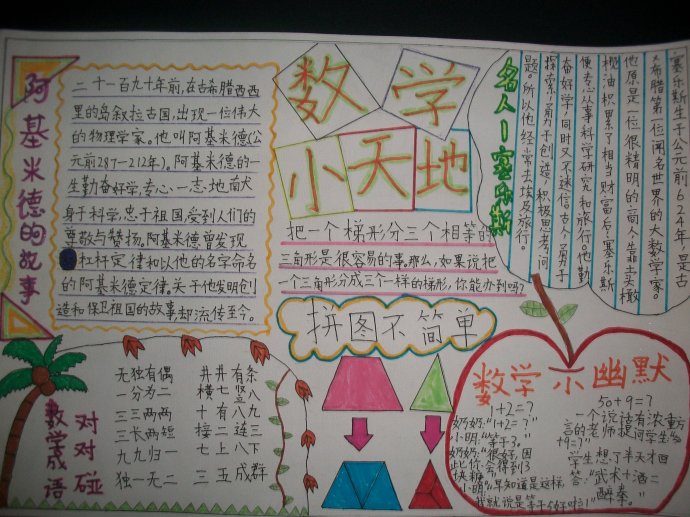 阿基米德的故事
二十一百九十年前,在古希腊西西
里的岛叙拉古国,出现一位伟大
的物理学家。他叫阿基米德(公
元前287-212年)。阿基米德的一
生勤奋好学,专心一志,地献
身于科学,忠于祖国,受到人们的
尊敬与赞扬。阿基米德曾发现
杠杆定律和以他的名字命名
的阿基米德定律。关于他发明创
造和保卫祖国的故事却流传至今。
数学
小天地
把一个梯形分三个相等的
三角形是很容易的事,那么,如果说把
一个三角形分成三个一样的梯形,你能办到吗?
拼图不简单
名人一塞乐斯
塞乐斯生于公元前624年,是古
希腊第一位闻名世界的大数学家。
他原是一位很精明的商人,靠卖橄
榄油积累了相当财富后,塞乐斯
便专心从事科学研究和旅行。他勤
奋好学,同时又不迷信古人,勇于
探索,勇于创造,积极思考问
题。所以他经常去埃及旅行。
数学成语
对对碰
无独有偶 井井有条
一分为二 横七竖八
三三两两 十有八九
三长两短 接二连三
九九归一 七上八下
独一无二 三五成群
数学小幽默
1+2=?
奶奶:"1+2=?"
小明:"等于3。"
奶奶:"很好,因
此你会得到3
块糖。"
小明:"早知道是这样,
我就说是等于5好啦!"
50+9=?
一个说话有浓重方
言的老师提问学生:"50
+9=?"
学生想了半天才回
答:"武术+酒=
醉拳。"